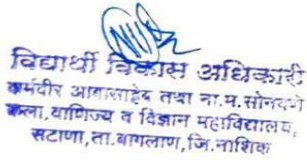 विद्यार्थी विकास अधिकारी
कर्मवीर आबासाहेब तथा ना.म. सोनवणे
कला, वाणिज्य व विज्ञान महाविद्यालय,
सटाणा, ता. बागलाण, जि. नाशिक